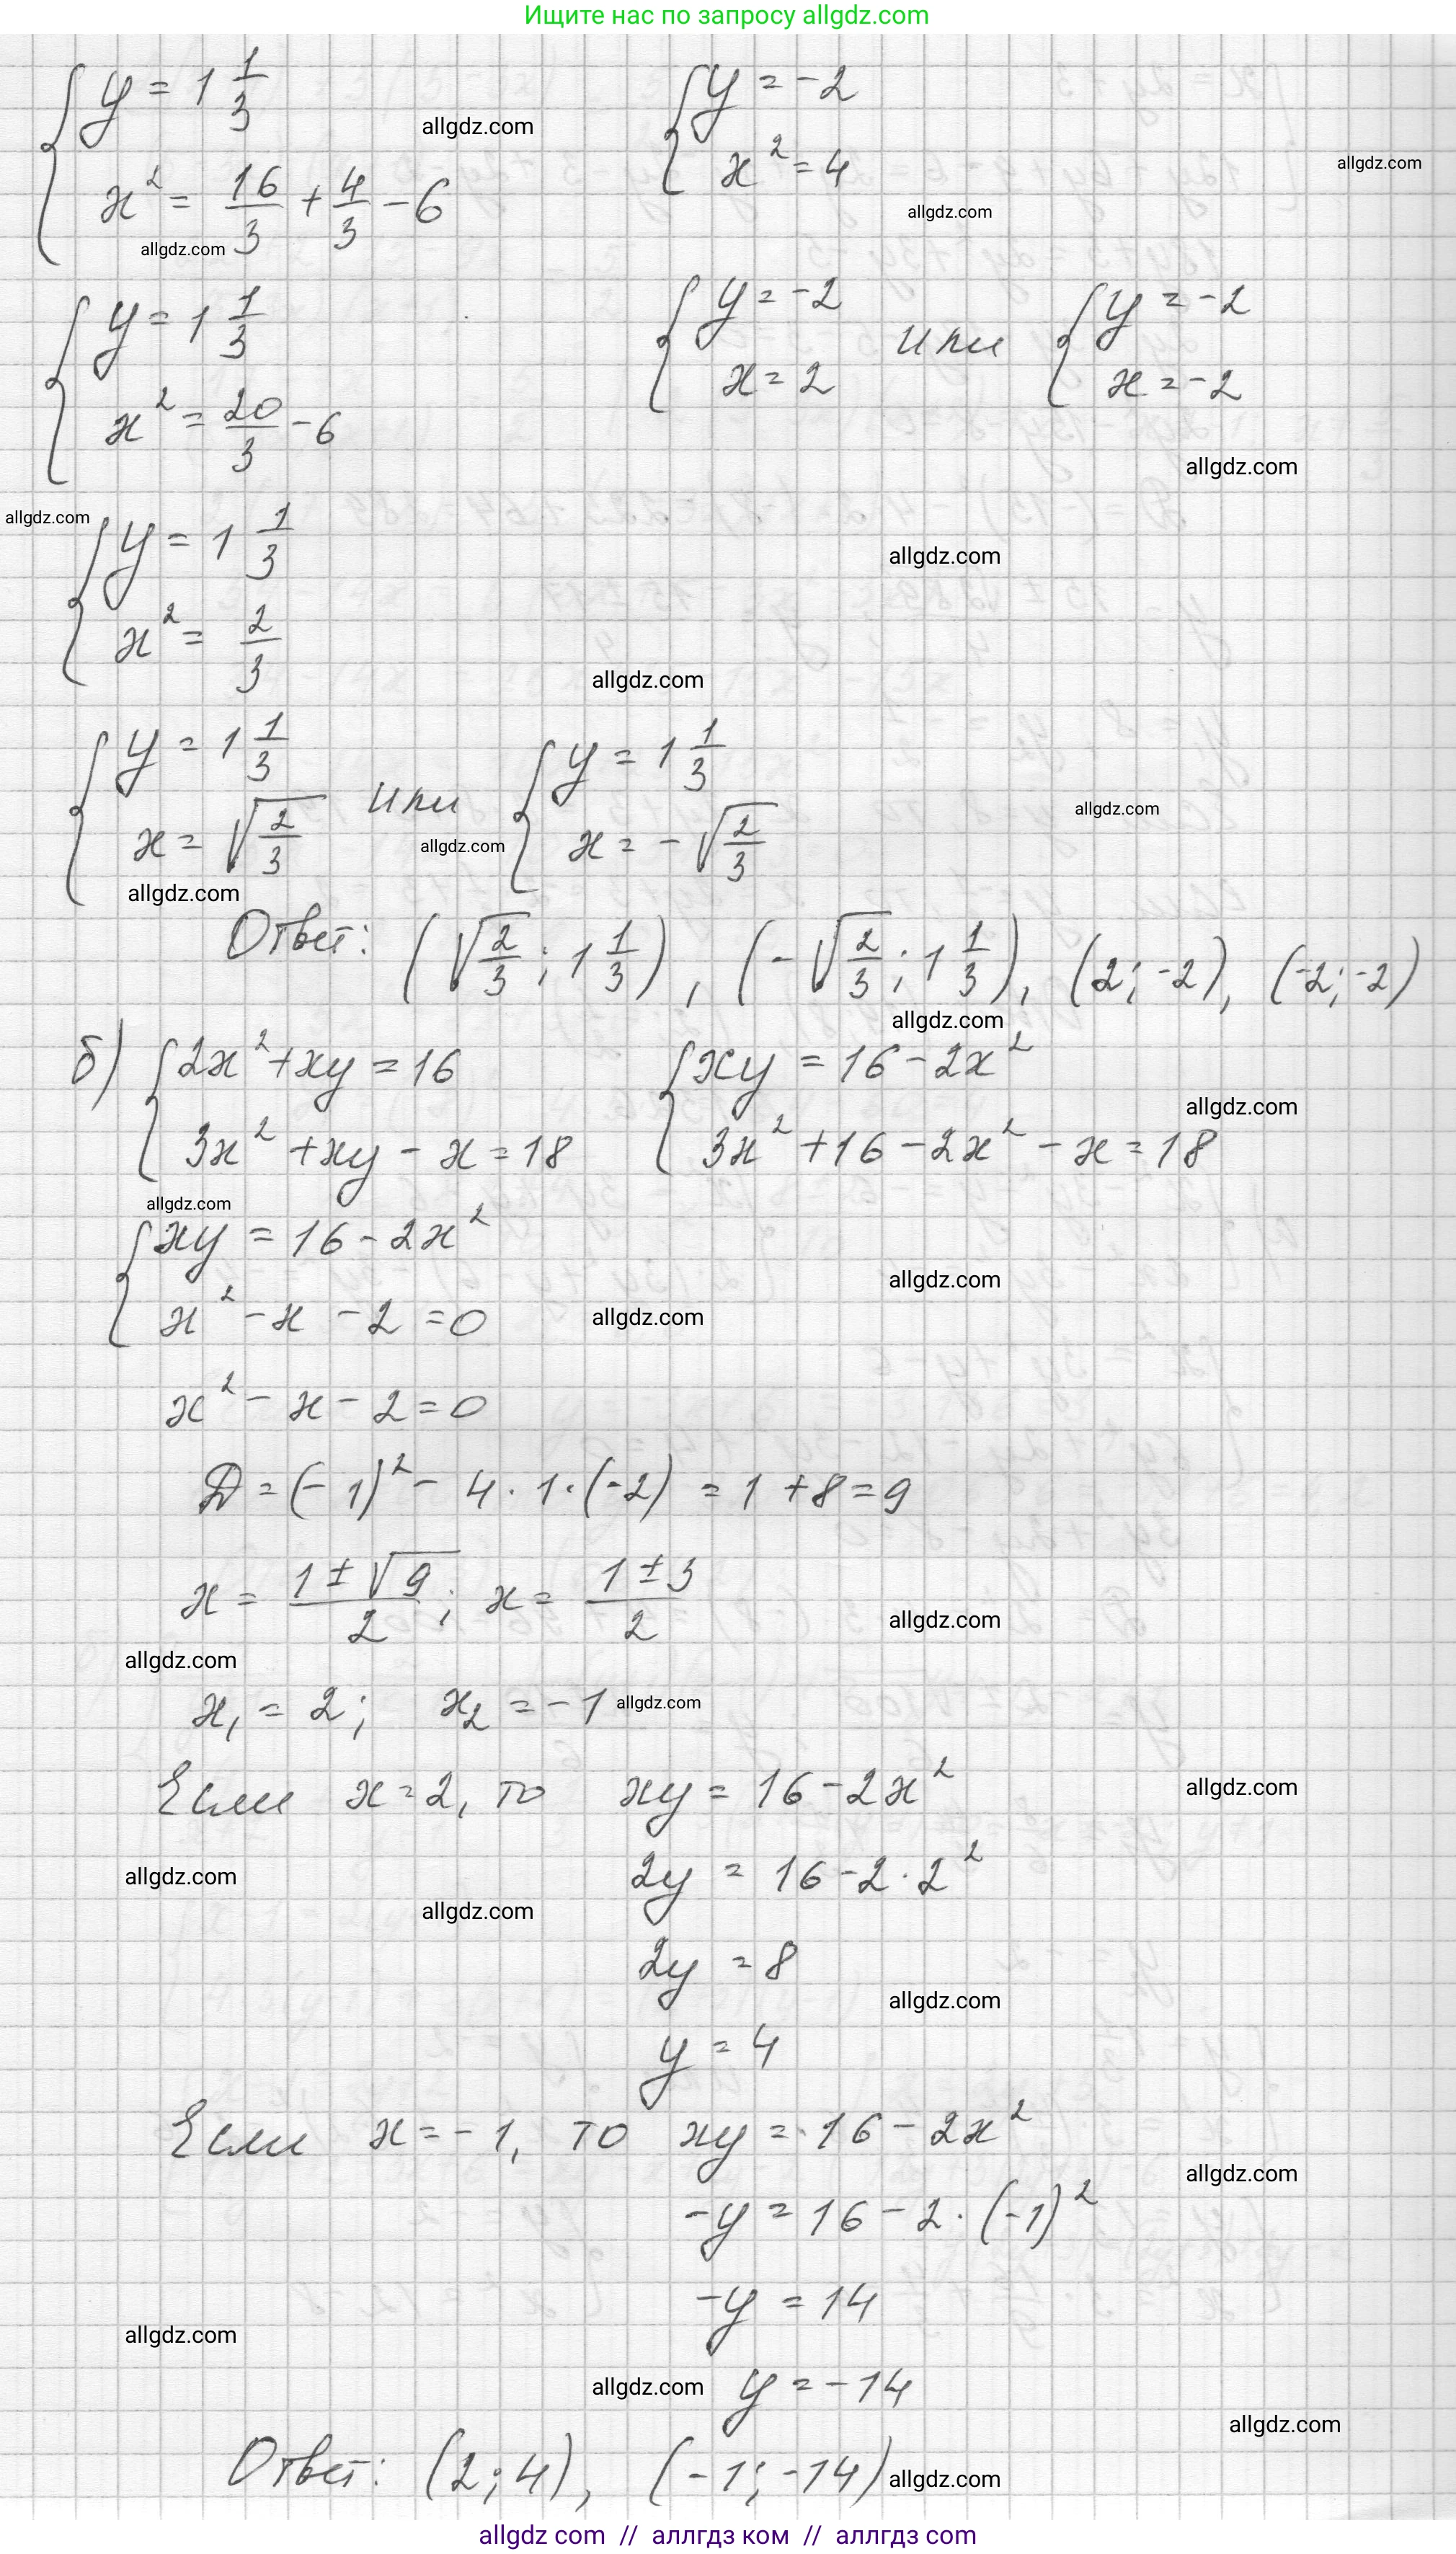 Ищите нас по запросу allgdz.com
{ y = 1 1/3    { y = -2
allgdz.com
x² = 16/3 + 4/3 - 6    x² = 4
allgdz.com
allgdz.com
allgdz.com
{ y = 1 1/3    { y = -2    { y = -2
или
x² = 20/3 - 6    x = 2    x = -2
allgdz.com
allgdz.com
{ y = 1 1/3
allgdz.com
x² = 2/3
allgdz.com
{ y = 1 1/3    { y = 1 1/3
или
allgdz.com
x = √(2/3)    allgdz.com    x = -√(2/3)
allgdz.com
Ответ: (√(2/3); 1 1/3), (-√(2/3); 1 1/3), (2; -2), (-2; -2)
allgdz.com
б) { 2x² + xy = 16    { xy = 16 - 2x²
allgdz.com
3x² + xy - x = 18    3x² + 16 - 2x² - x = 18
allgdz.com
{ xy = 16 - 2x²
allgdz.com
x² - x - 2 = 0    allgdz.com
x² - x - 2 = 0
D = (-1)² - 4 · 1 · (-2) = 1 + 8 = 9
x = (1 ± √9)/2; x = (1 ± 3)/2
allgdz.com
allgdz.com
x₁ = 2; x₂ = -1 allgdz.com
Если x = 2, то xy = 16 - 2x²
allgdz.com
2y = 16 - 2 · 2²
allgdz.com
allgdz.com
2y = 8
allgdz.com
y = 4
Если x = -1, то xy = 16 - 2x²
allgdz.com
-y = 16 - 2 · (-1)²
-y = 14
allgdz.com
allgdz.com y = -14
allgdz.com
Ответ: (2; 4), (-1; -14) allgdz.com
allgdz com // аллгдз ком // аллгдз com